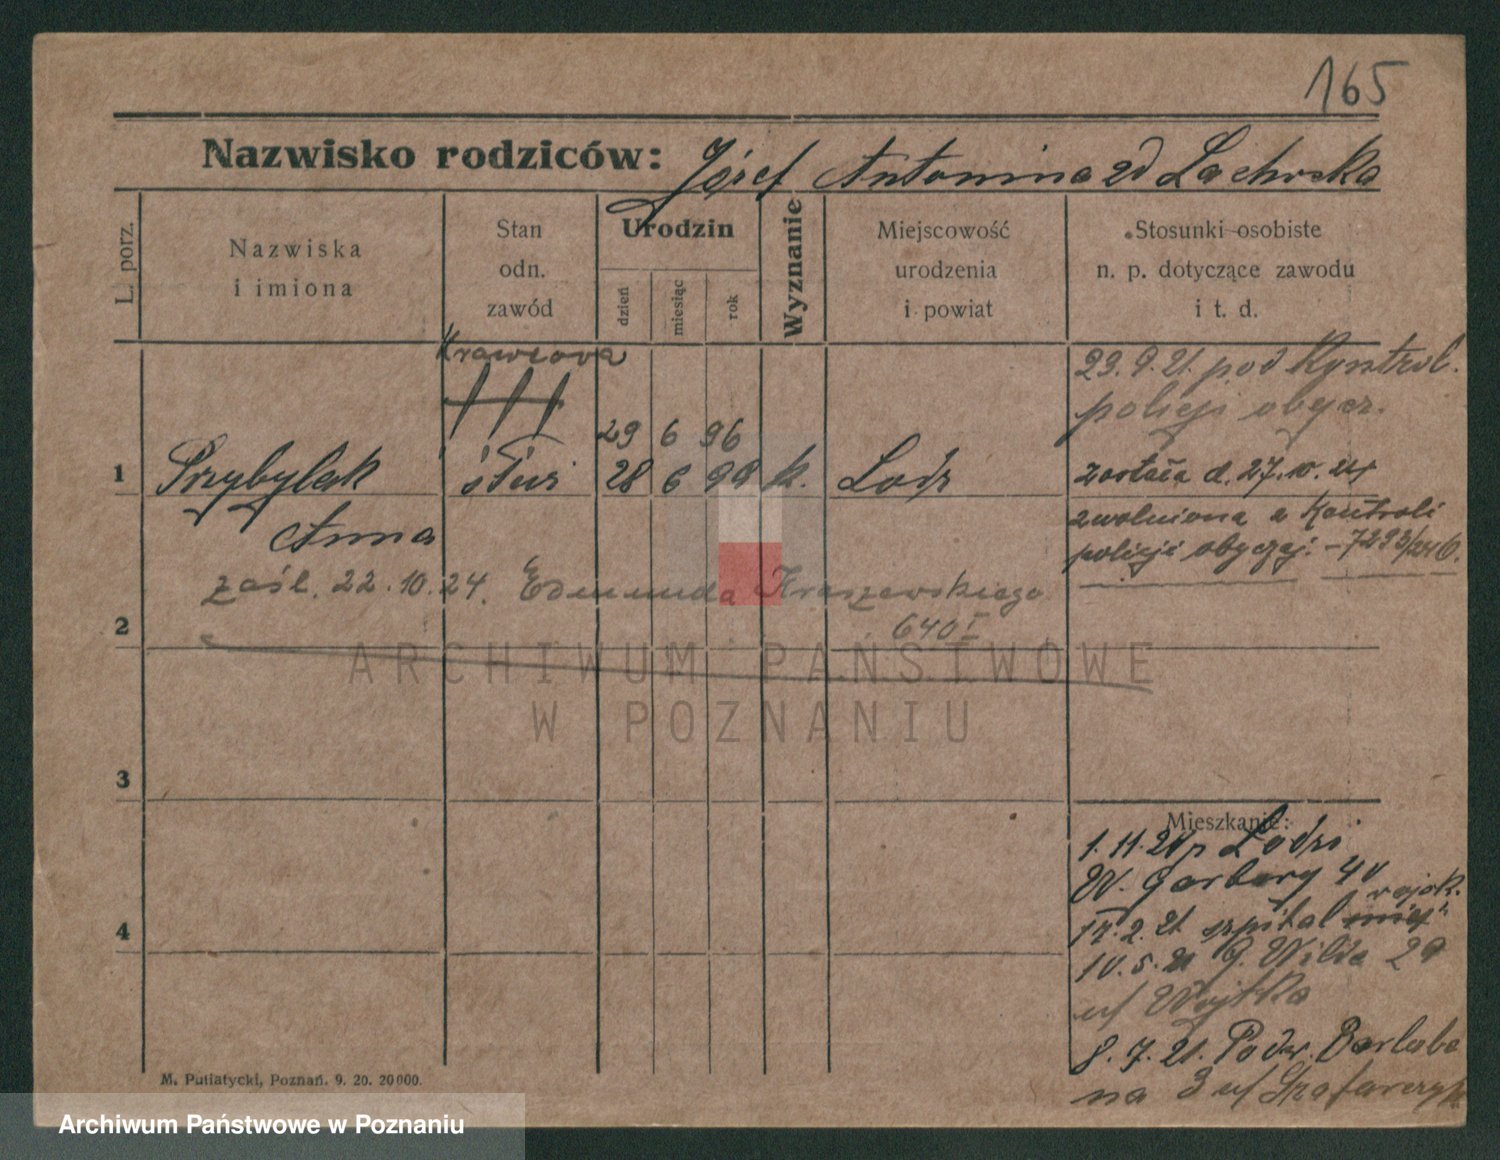 165
Nazwisko rodziców: Józef Antonina zd Lachocka
L. porz.
Nazwiska
i imiona
Stan
odn.
zawód
Urodzin
dzień
miesiąc
rok
Wyznanie
Miejscowość
urodzenia
i powiat
Stosunki osobiste
n. p. dotyczące zawodu
i t. d.
Krawcowa
29 6 96
1 Przybylak służ 28 6 98 k. Lodz
Anna
zaśl. 22.10.24. Edmunda Kraszewskiego
640 I
23.9.21. pod Kontrol.
policji obycz.
została d. 27.10.24
zwolniona z Kontroli
policji obyczaj: - 7293/24 6.
2
3
4
ARCHIWUM PAŃSTWOWE
W POZNANIU
Mieszkanie:
1.11.20 p Lodzi
W. Garbary 40
14.2.21 szpital miej wojsk.
10.5.21 G. Wilda 29
u/ Wojtka
8.7.21. Podr. Barleba
na 3 u/ Szafarczyk
M. Putiatycki, Poznań. 9. 20. 20000.
Archiwum Państwowe w Poznaniu